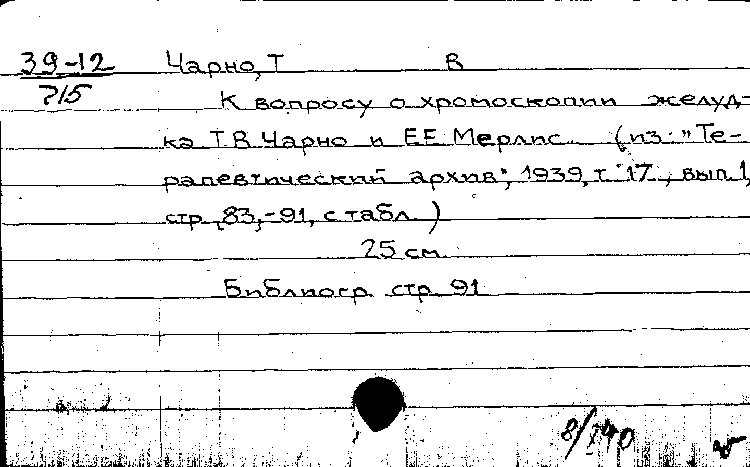 39-12 Чарно, Т В
715
К вопросу о хромоскопии желуд-
ка Т.В. Чарно и Е.Е. Мерлис. (из: "Те-
рапевтический архив", 1939, т. 17, вып 1,
стр. 83,-91, с табл.)
25 см.
Библиогр. стр. 91